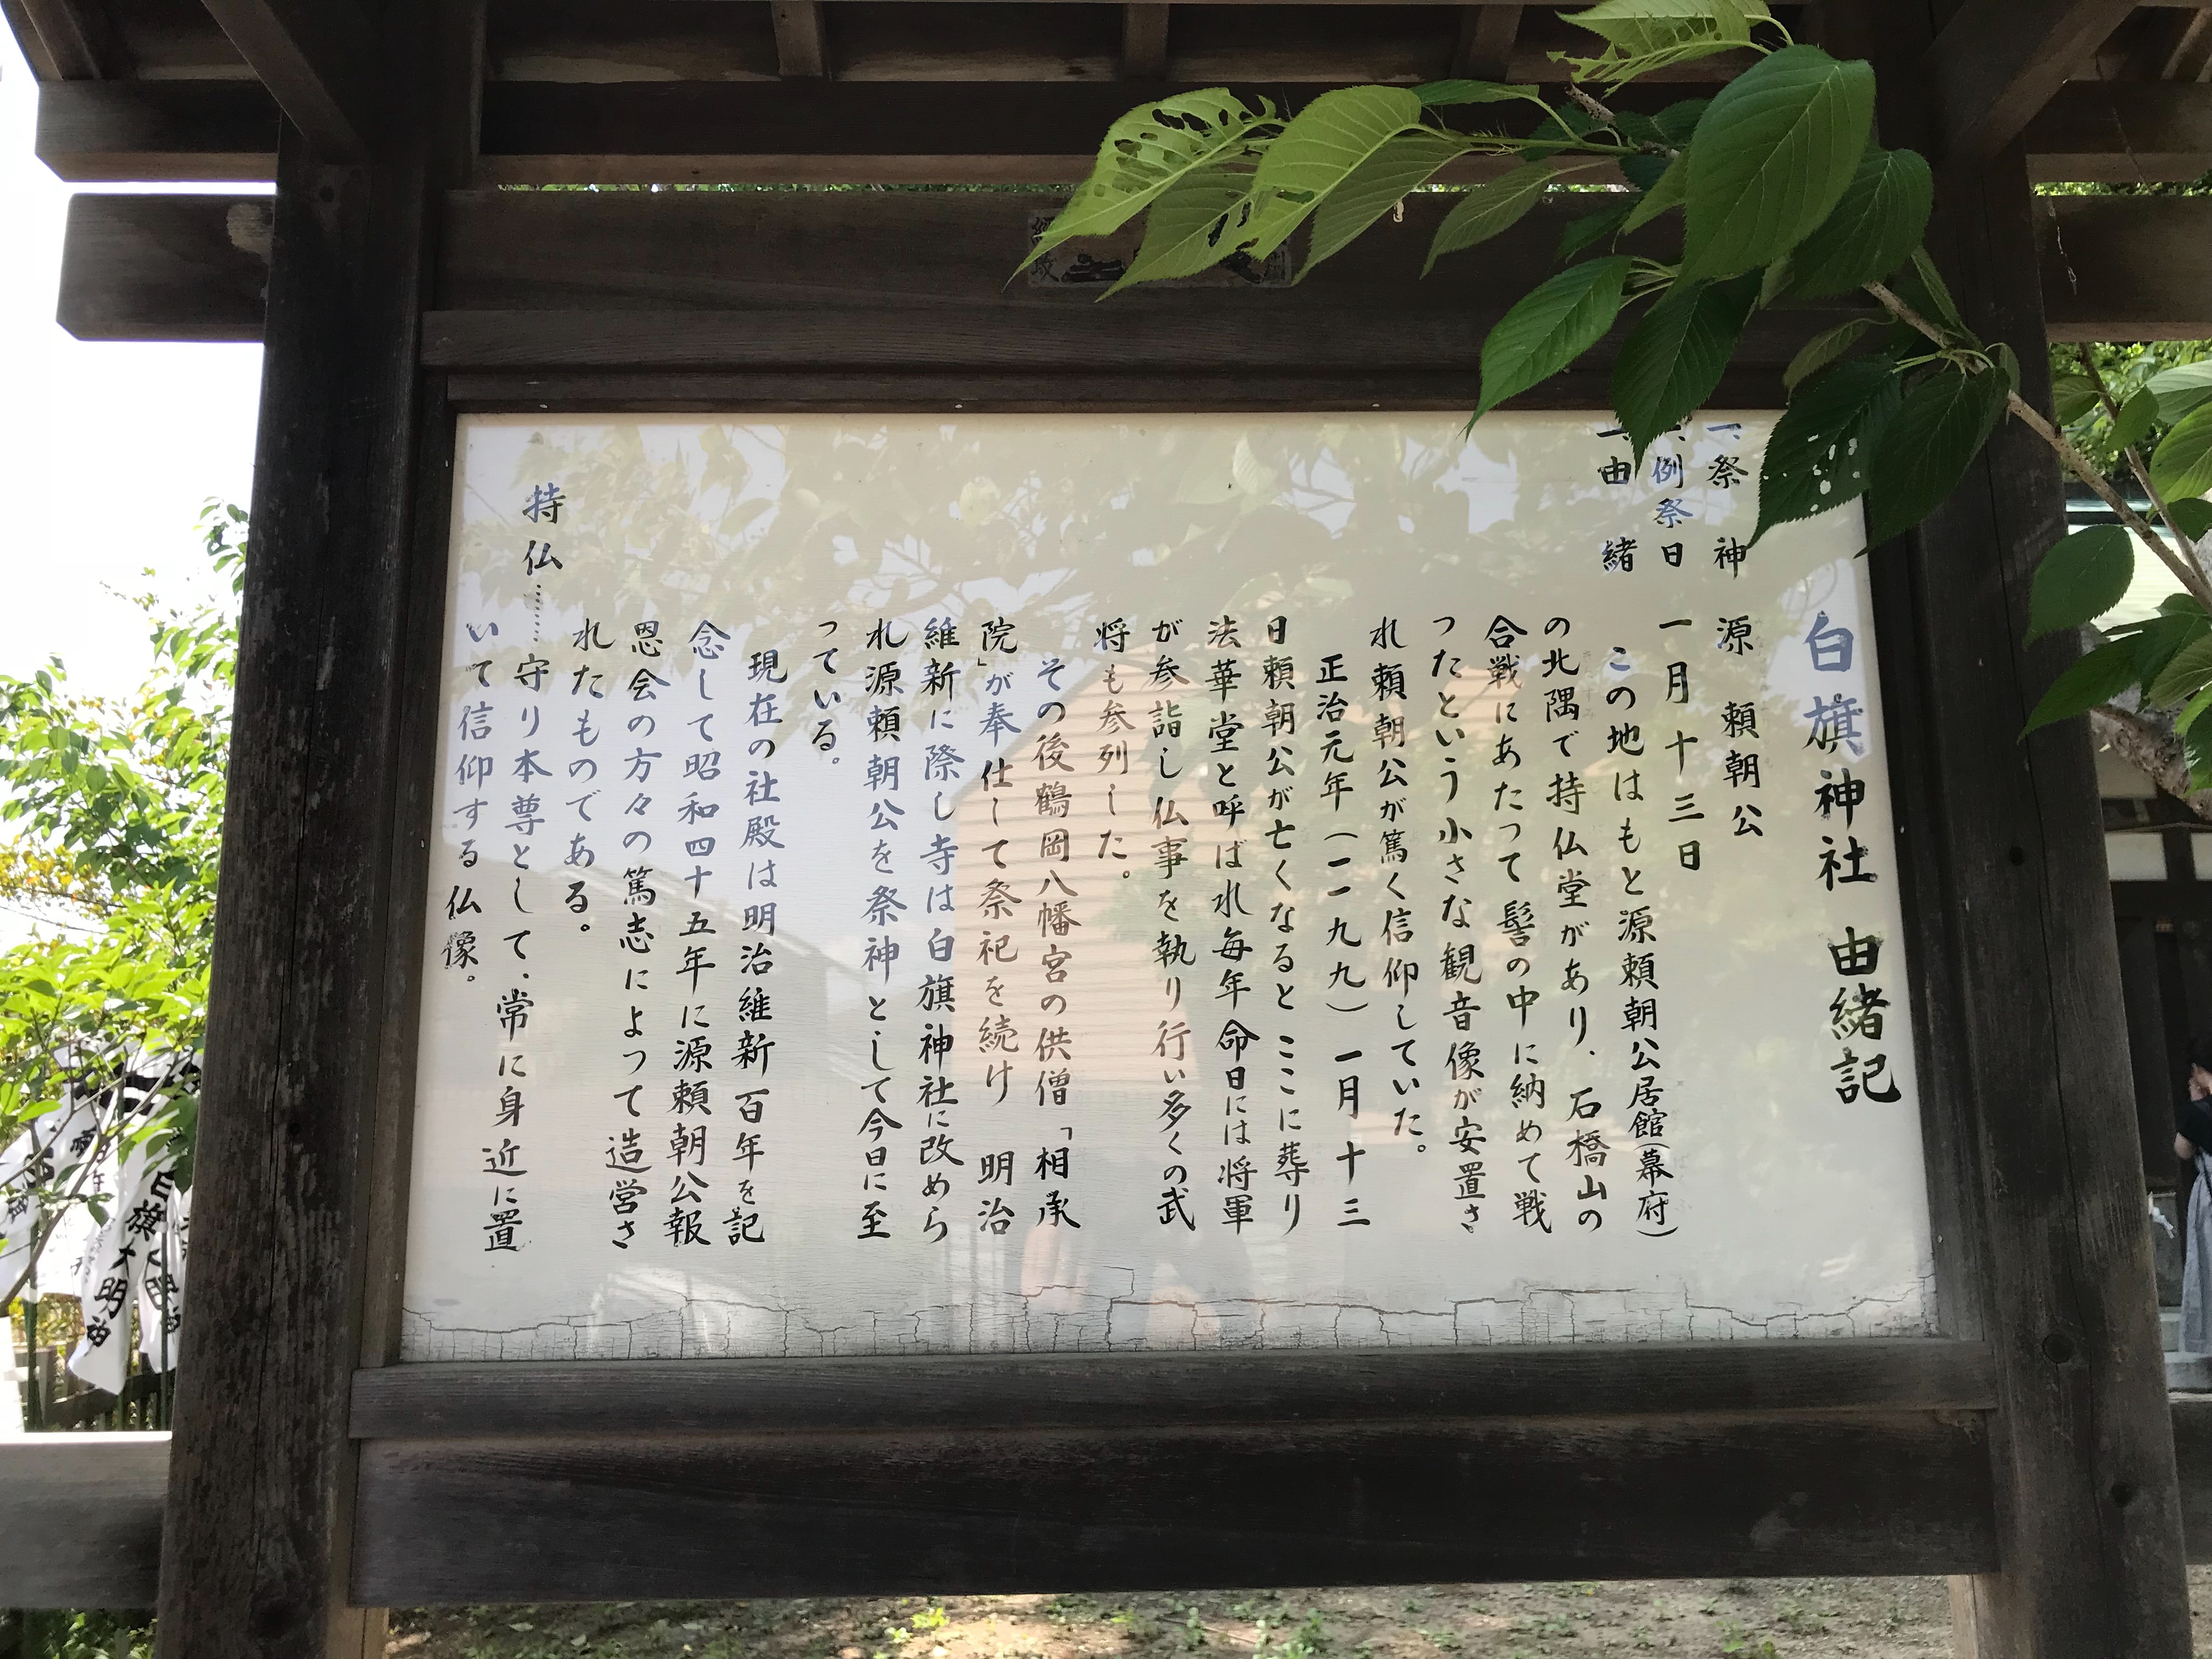 白旗神社 由緒記
一、祭神 源 頼朝公
一、例祭日 一月十三日
一、由緒 この地はもと源頼朝公居館(幕府)
の北隅で持仏堂があり、石橋山の
合戦にあたって髻の中に納めて戦
ったという小さな観音像が安置さ
れ頼朝公が篤く信仰していた。
正治元年(一一九九)一月十三
日頼朝公が亡くなるとここに葬り
法華堂と呼ばれ毎年命日には将軍
が参詣し仏事を執り行い多くの武
将も参列した。
その後鶴岡八幡宮の供僧「相承
院」が奉仕して祭祀を続け 明治
維新に際し寺は白旗神社に改めら
れ源頼朝公を祭神として今日に至
っている。
現在の社殿は明治維新百年を記
念して昭和四十五年に源頼朝公報
恩会の方々の篤志によって造営さ
れたものである。
持仏……守り本尊として、常に身近に置
いて信仰する仏像。
白旗大明神